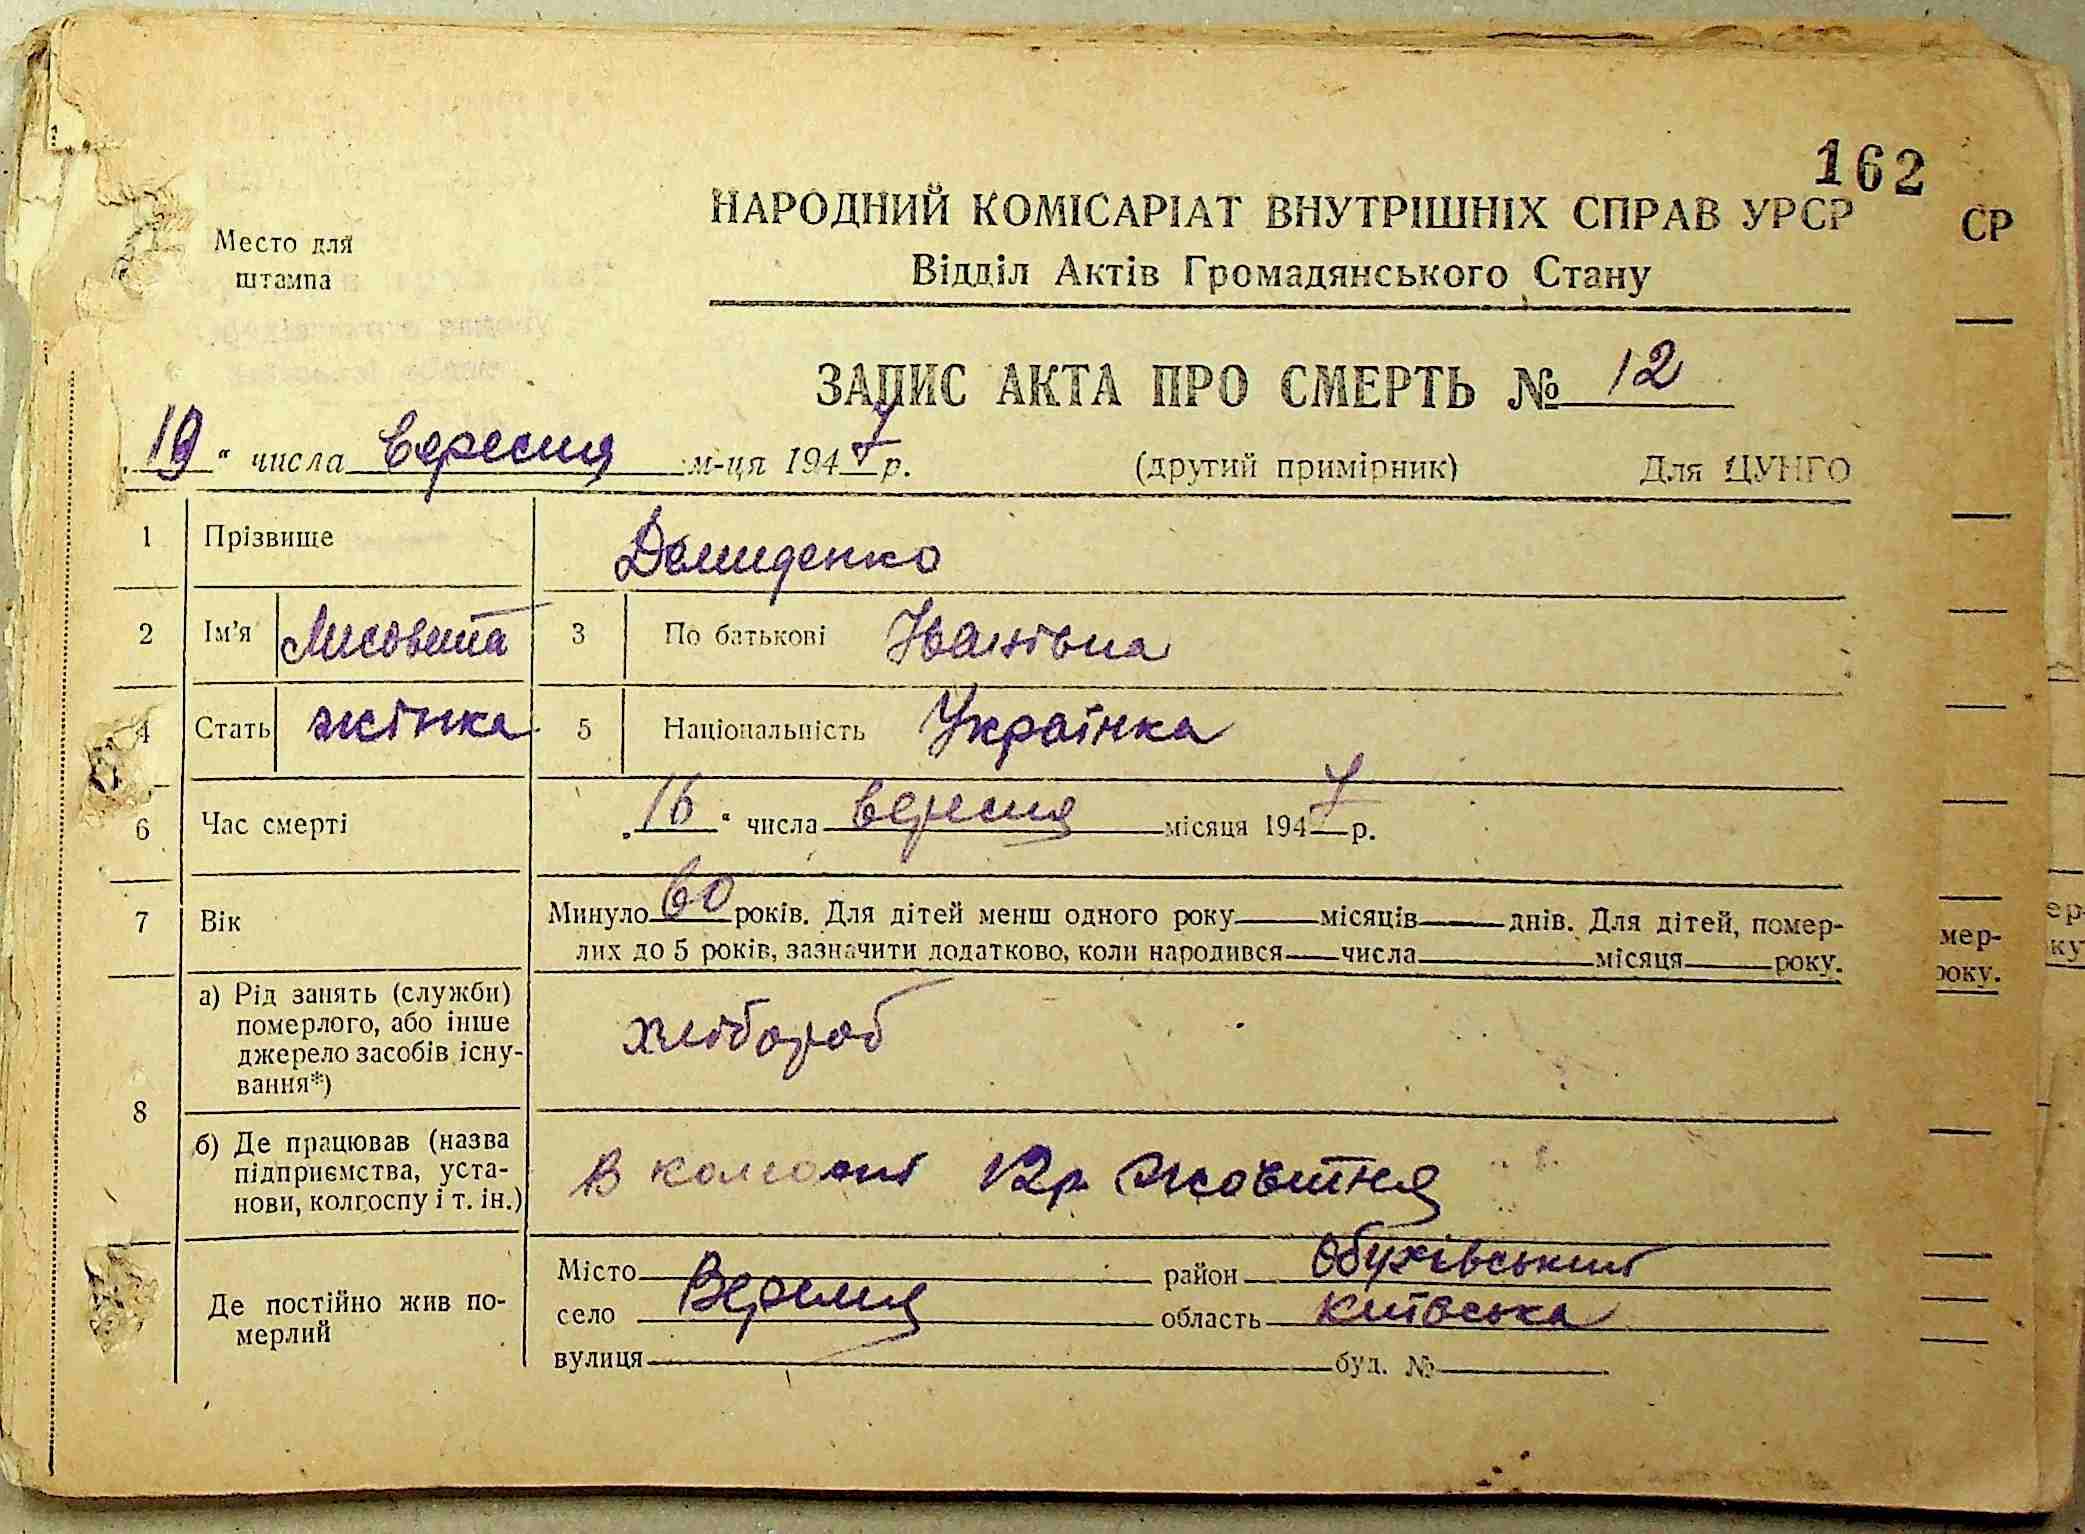 162
НАРОДНИЙ КОМІСАРІАТ ВНУТРІШНІХ СПРАВ УРСР
СР
Место для
штампа
Відділ Актів Громадянського Стану
ЗАПИС АКТА ПРО СМЕРТЬ № 12
„19“ числа вересня м-ця 1947 р. (другий примірник) Для ЦУНГО
1 Прізвище Демиденко
2 Ім'я Лисовета 3 По батькові Іванівна
4 Стать жінка 5 Національність Українка
6 Час смерті „16“ числа вересня місяця 1947 р.
7 Вік Минуло 60 років. Для дітей менш одного року — місяців — днів. Для дітей, помер-
лих до 5 років, зазначити додатково, коли народився — числа — місяця — року.
мер-
року.
ер-
ку
8 а) Рід занять (служби)
померлого, або інше
джерело засобів існу-
вання*)
хлібороб
б) Де працював (назва
підприємства, уста-
нови, колгоспу і т. ін.)
В колгоспі 12р. Жовтня
Де постійно жив по-
мерлий
Місто район Обухівський
село Веремя область Київська
вулиця буд. №